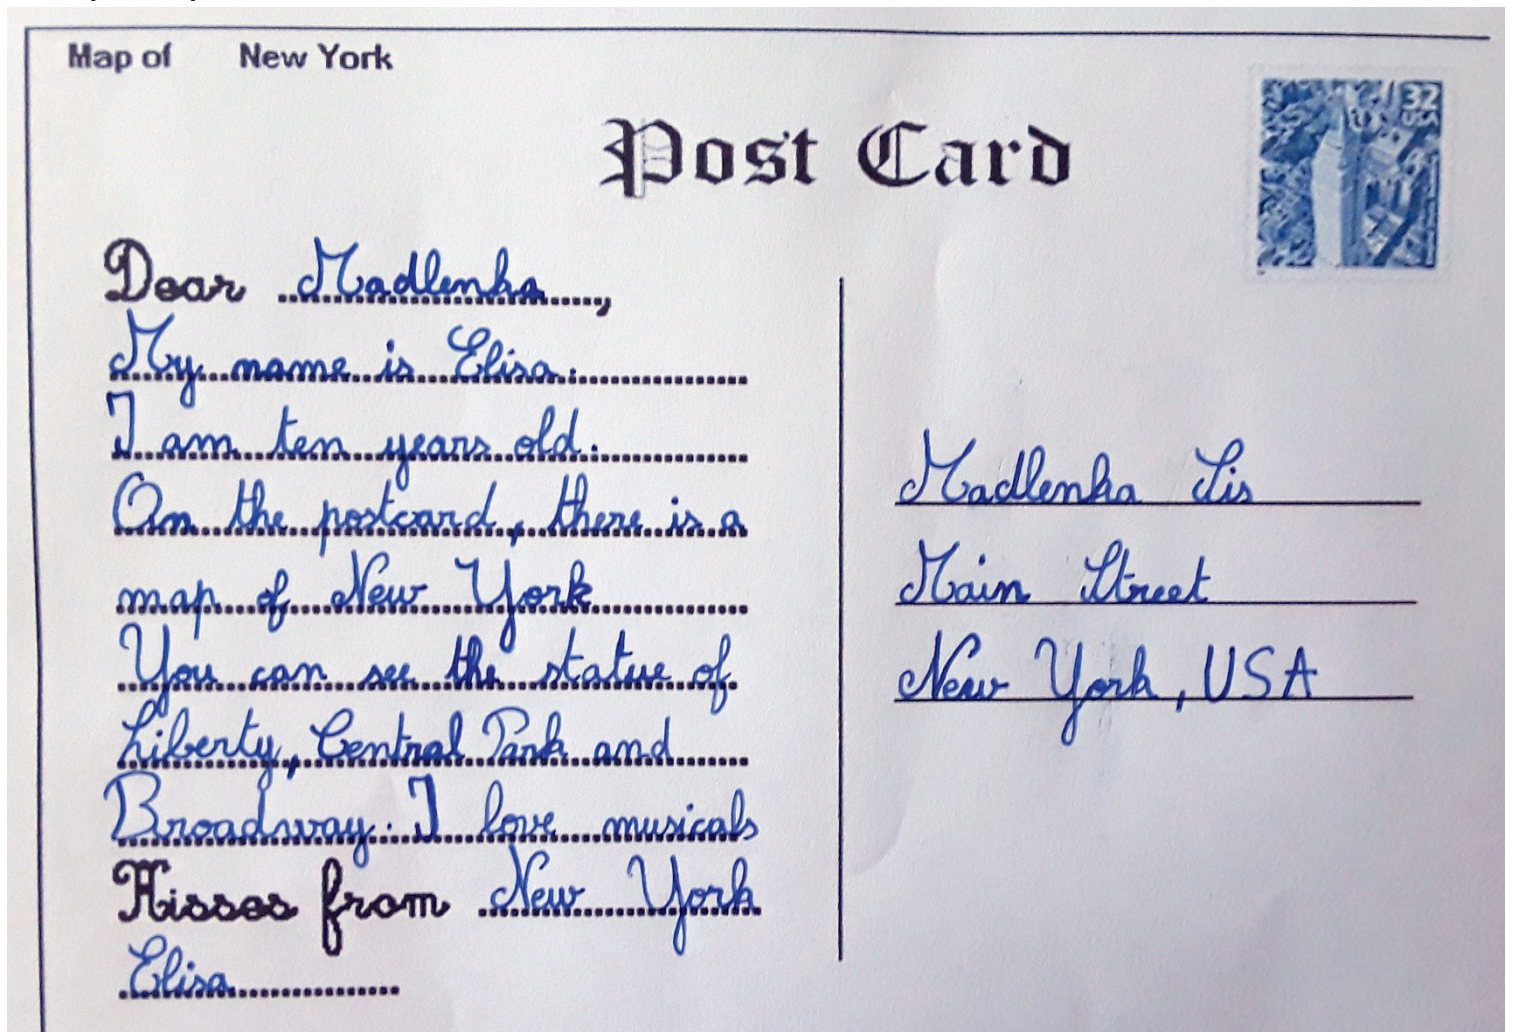 Map of New York
Post Card
32
USA
Dear Madlenka,
My name is Elisa.
I am ten years old.
On the postcard, there is a
map of New York
You can see the statue of
Liberty, Central Park and
Broadway. I love musicals
Kisses from New York
Elisa
Madlenka Lis
Main Street
New York, USA